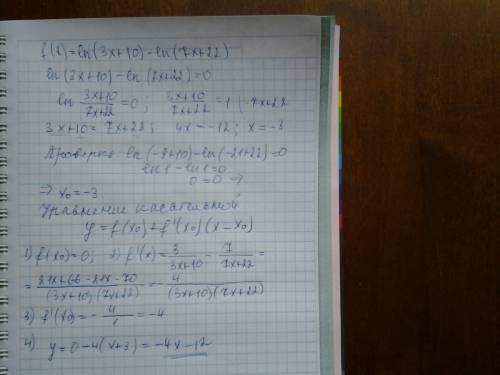 f(x)=ln(3x+10)-ln(7x+22)
ln(3x+10)-ln(7x+22)=0
ln (3x+10)/(7x+22) = 0 ; (3x+10)/(7x+22) = 1 | · 7x+22
3x+10=7x+22 ; 4x=-12 ; x=-3
Проверка: ln(-9+10)-ln(-21+22)=0
ln1-ln1=0
0=0 ⇒
⇒ x₀=-3.
Уравнение касательной
y=f(x₀)+f'(x₀)(x-x₀)
1) f(x₀)=0; 2) f'(x)= 3/(3x+10) - 7/(7x+22) =
= (21x+66-21x-70)/((3x+10)(7x+22)) = - 4/((3x+10)(7x+22))
3) f'(x₀)= - 4/1 = -4
4) y=0-4(x+3)=-4x-12